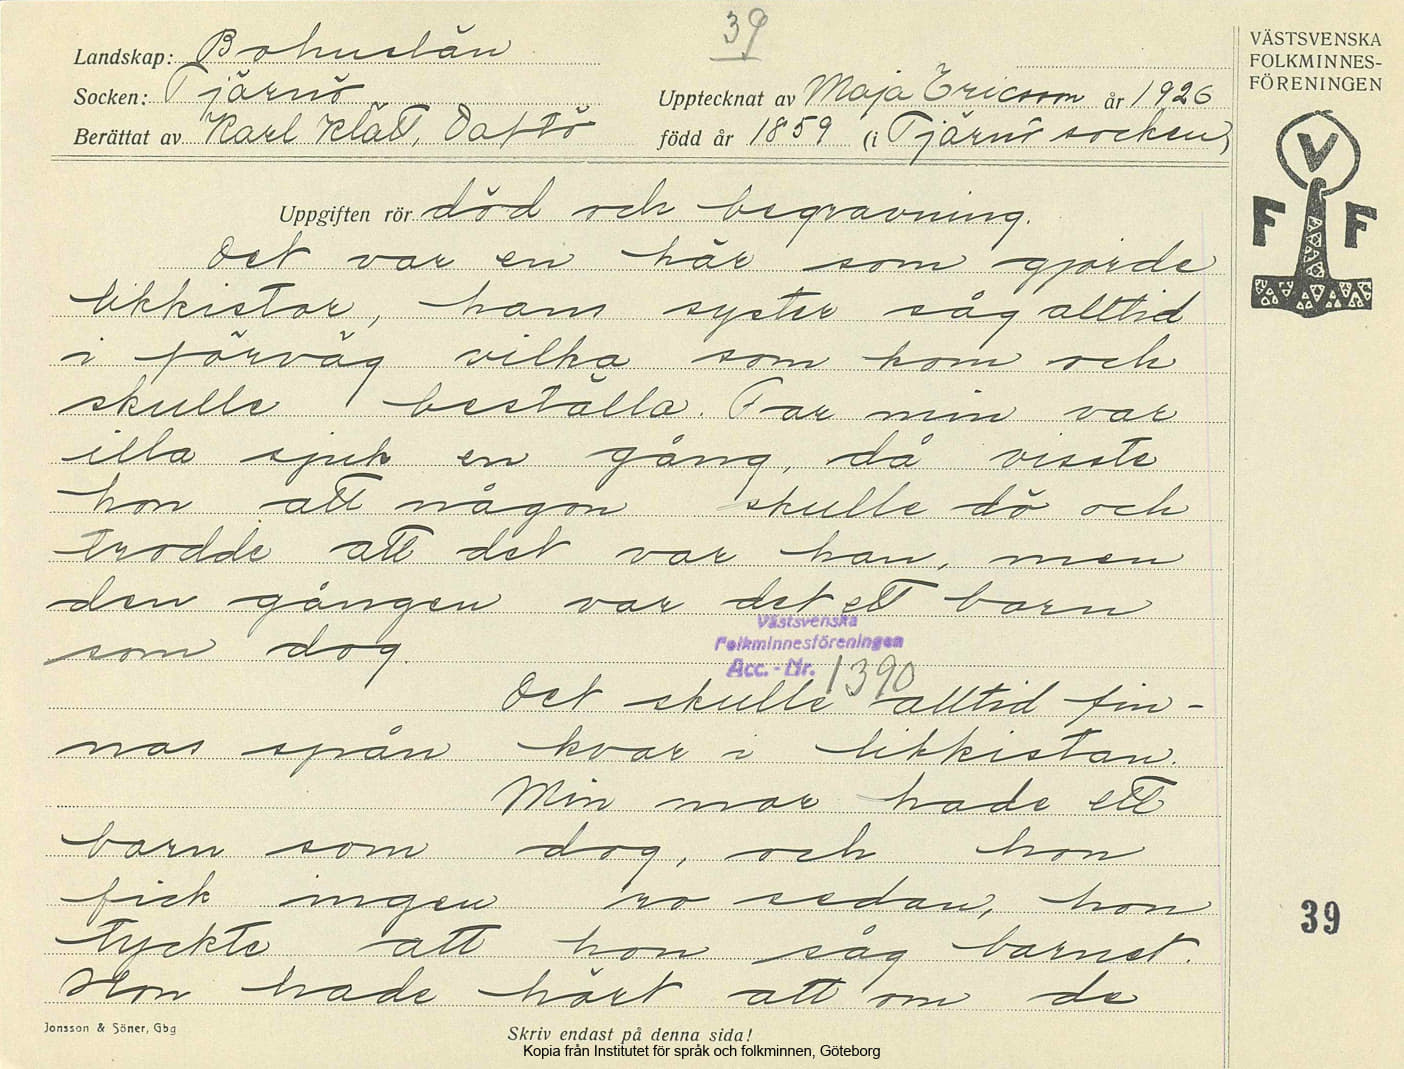 39
Landskap: Bohuslän
Socken: Tjärnö
Berättat av Karl Klätt, Daftö
Upptecknat av Maja Ericsson år 1926
född år 1859 (i Tjärnö socken)
VÄSTSVENSKA
FOLKMINNES-
FÖRENINGEN
V
F F
Uppgiften rör död och begravning.
Det var en här som gjorde
likkistor, hans syster såg alltid
i förväg vilka som kom och
skulle beställa. Far min var
illa sjuk en gång, då visste
hon att någon skulle dö och
trodde att det var han, men
den gången var det ett barn
som dog.
Västsvenska
Folkminnesföreningen
Acc. - Nr. 1390
Det skulle alltid fin-
nas spån kvar i likkistan.
Min mor hade ett
barn som dog, och hon
fick ingen ro sedan, hon
tyckte att hon såg barnet.
Hon hade hört att om de
39
Jonsson & Söner, Gbg
Skriv endast på denna sida!
Kopia från Institutet för språk och folkminnen, Göteborg